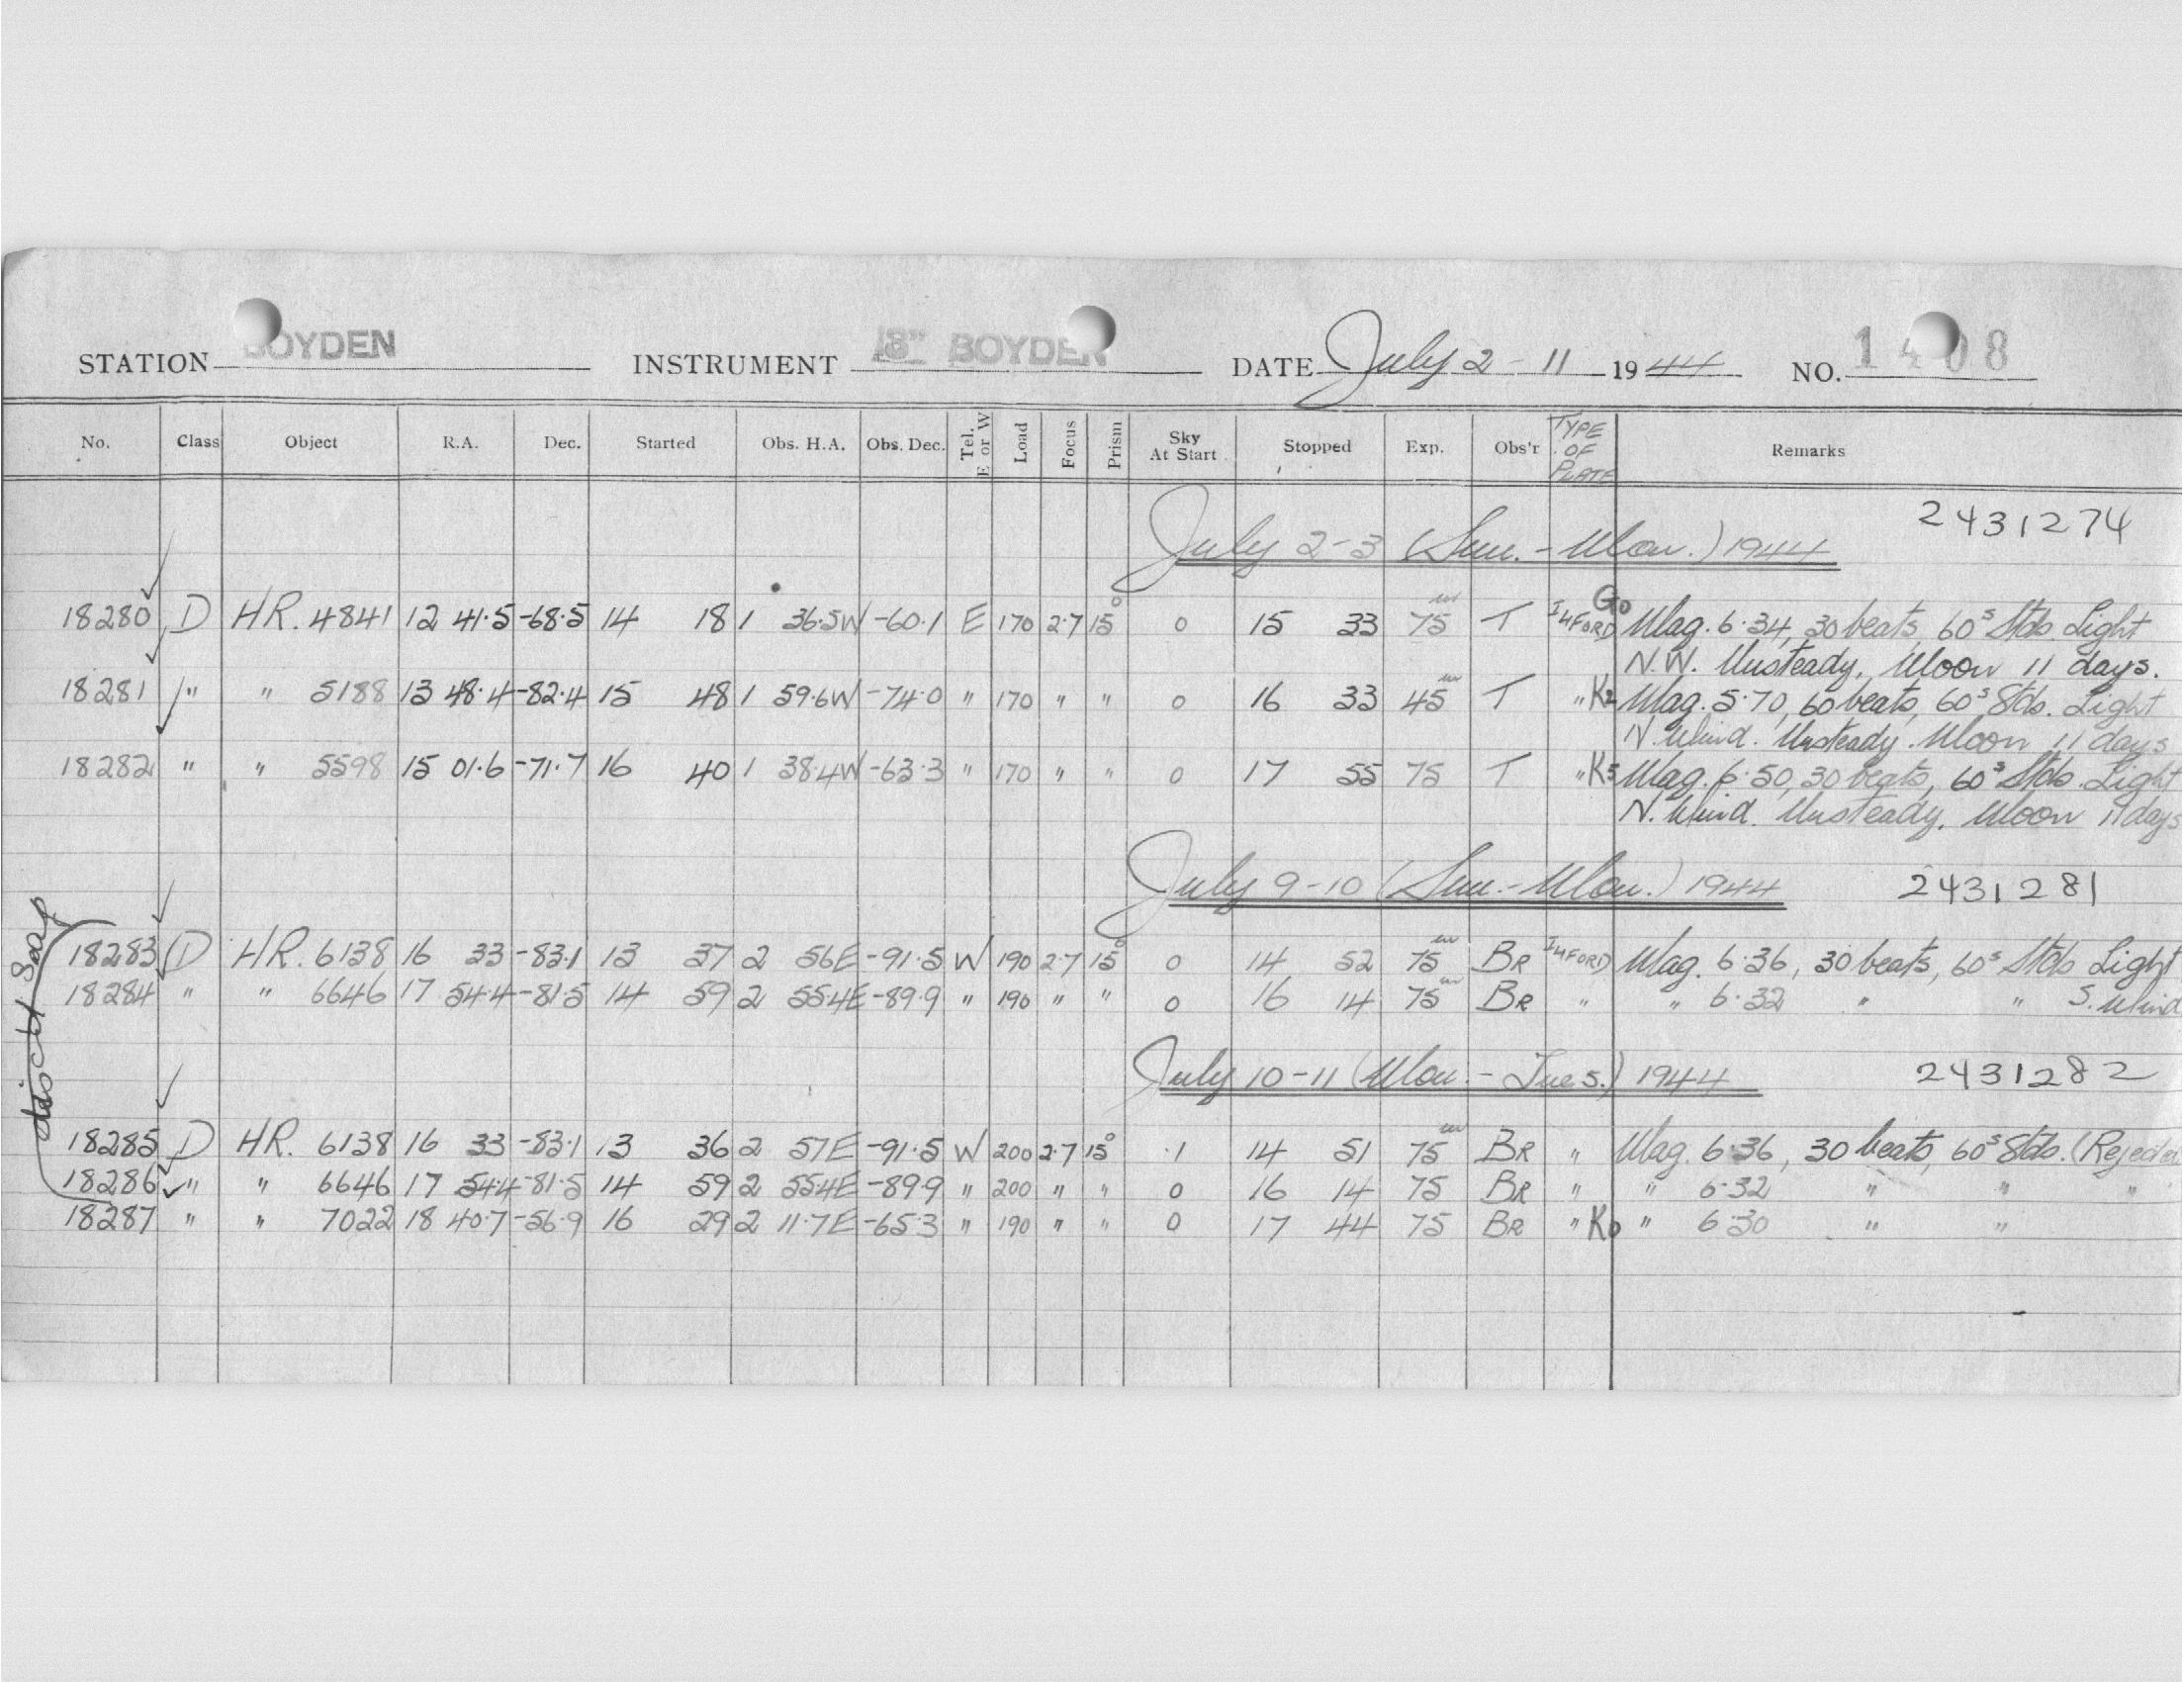 STATION BOYDEN INSTRUMENT 13" BOYDEN DATE July 2 - 11 1944 NO. 1408
No. Class Object R.A. Dec. Started Obs. H.A. Obs. Dec. Tel. E or W Load Focus Prism Sky At Start Stopped Exp. Obs'r TYPE OF PLATE Remarks
July 2-3 (Sun. - Mon.) 1944 2431274
18280 D HR. 4841 12 41.5 -68.5 14 18 1 36.5W -60.1 E 170 2.7 15° 0 15 33 75m T ILFORD G0 Mag. 6.34, 30 beats, 60s Stds Light
N.W. Unsteady, Moon 11 days.
18281 " " 5188 13 48.4 -82.4 15 48 1 59.6W -74.0 " 170 " " 0 16 33 45m T " K2 Mag. 5.70, 60 beats, 60s Stds. Light
N. Wind. Unsteady. Moon 11 days
18282 " " 5598 15 01.6 -71.7 16 40 1 38.4W -63.3 " 170 " " 0 17 55 75 T " K5 Mag. 6.50, 30 beats, 60s Stds. Light
N. Wind. Unsteady. Moon 11 days
July 9-10 (Sun. - Mon.) 1944 2431281
18283 D HR. 6138 16 33 -83.1 13 37 2 56E -91.5 W 190 2.7 15° 0 14 52 75m BR ILFORD Mag. 6.36, 30 beats, 60s Stds Light
18284 " " 6646 17 54.4 -81.5 14 59 2 55.4E -89.9 " 190 " " 0 16 14 75m BR " " 6.32 " " S. Wind
July 10-11 (Mon. - Tues.) 1944 2431282
18285 D HR. 6138 16 33 -83.1 13 36 2 57E -91.5 W 200 2.7 15° .1 14 51 75m BR " Mag. 6.36, 30 beats, 60s Stds. (Rejected
18286 " " 6646 17 54.4 -81.5 14 59 2 55.4E -89.9 " 200 " " 0 16 14 75 BR " " 6.32 " " "
18287 " " 7022 18 40.7 -56.9 16 29 2 11.7E -65.3 " 190 " " 0 17 44 75 BR " K0 " 6.30 " "